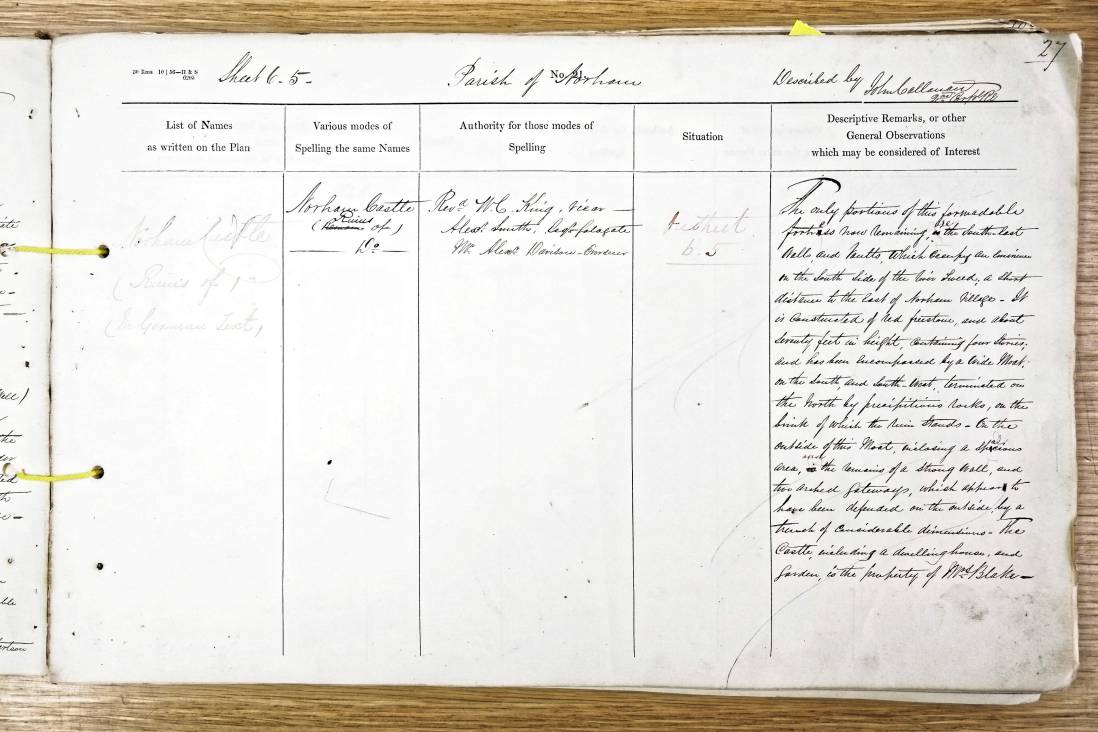 27
20 Rms 10 | 56—H & S
6208
Sheet 6-5-
Parish of Norham
No 21
Described by John Callanan
List of Names
as written on the Plan
Various modes of
Spelling the same Names
Authority for those modes of
Spelling
Situation
Descriptive Remarks, or other
General Observations
which may be considered of Interest
Norham Castle
(Ruins of)
(In German Text)
Norham Castle
(Remains Ruins of)
Do
Revd. W. C. King, Vicar —
Alexr. Smith,
Mr. Alexr. Davison
District
6.5
The only portions of this formadable
fortress now remaining, are the South-East
Walls and Vaults, which occupy an eminence
on the South Side of the river Tweed, a short
distance to the East of Norham Village - It
is Constructed of red freestone, and about
Seventy feet in height, Containing four Stories,
and has been encompassed by a Wide Moat,
on the South, and South-West, terminated on
the North by precipitious rocks, on the
brink of which the ruin Stands - On the
outside of this Moat, inclosing a Spacious
area, are the remains of a strong Wall, and
two arched Gateways, which appear to
have been defended on the outside, by a
trench of Considerable dimensions - The
Castle, including a dwelling house, and
Garden, is the property of Mrs. Blake —